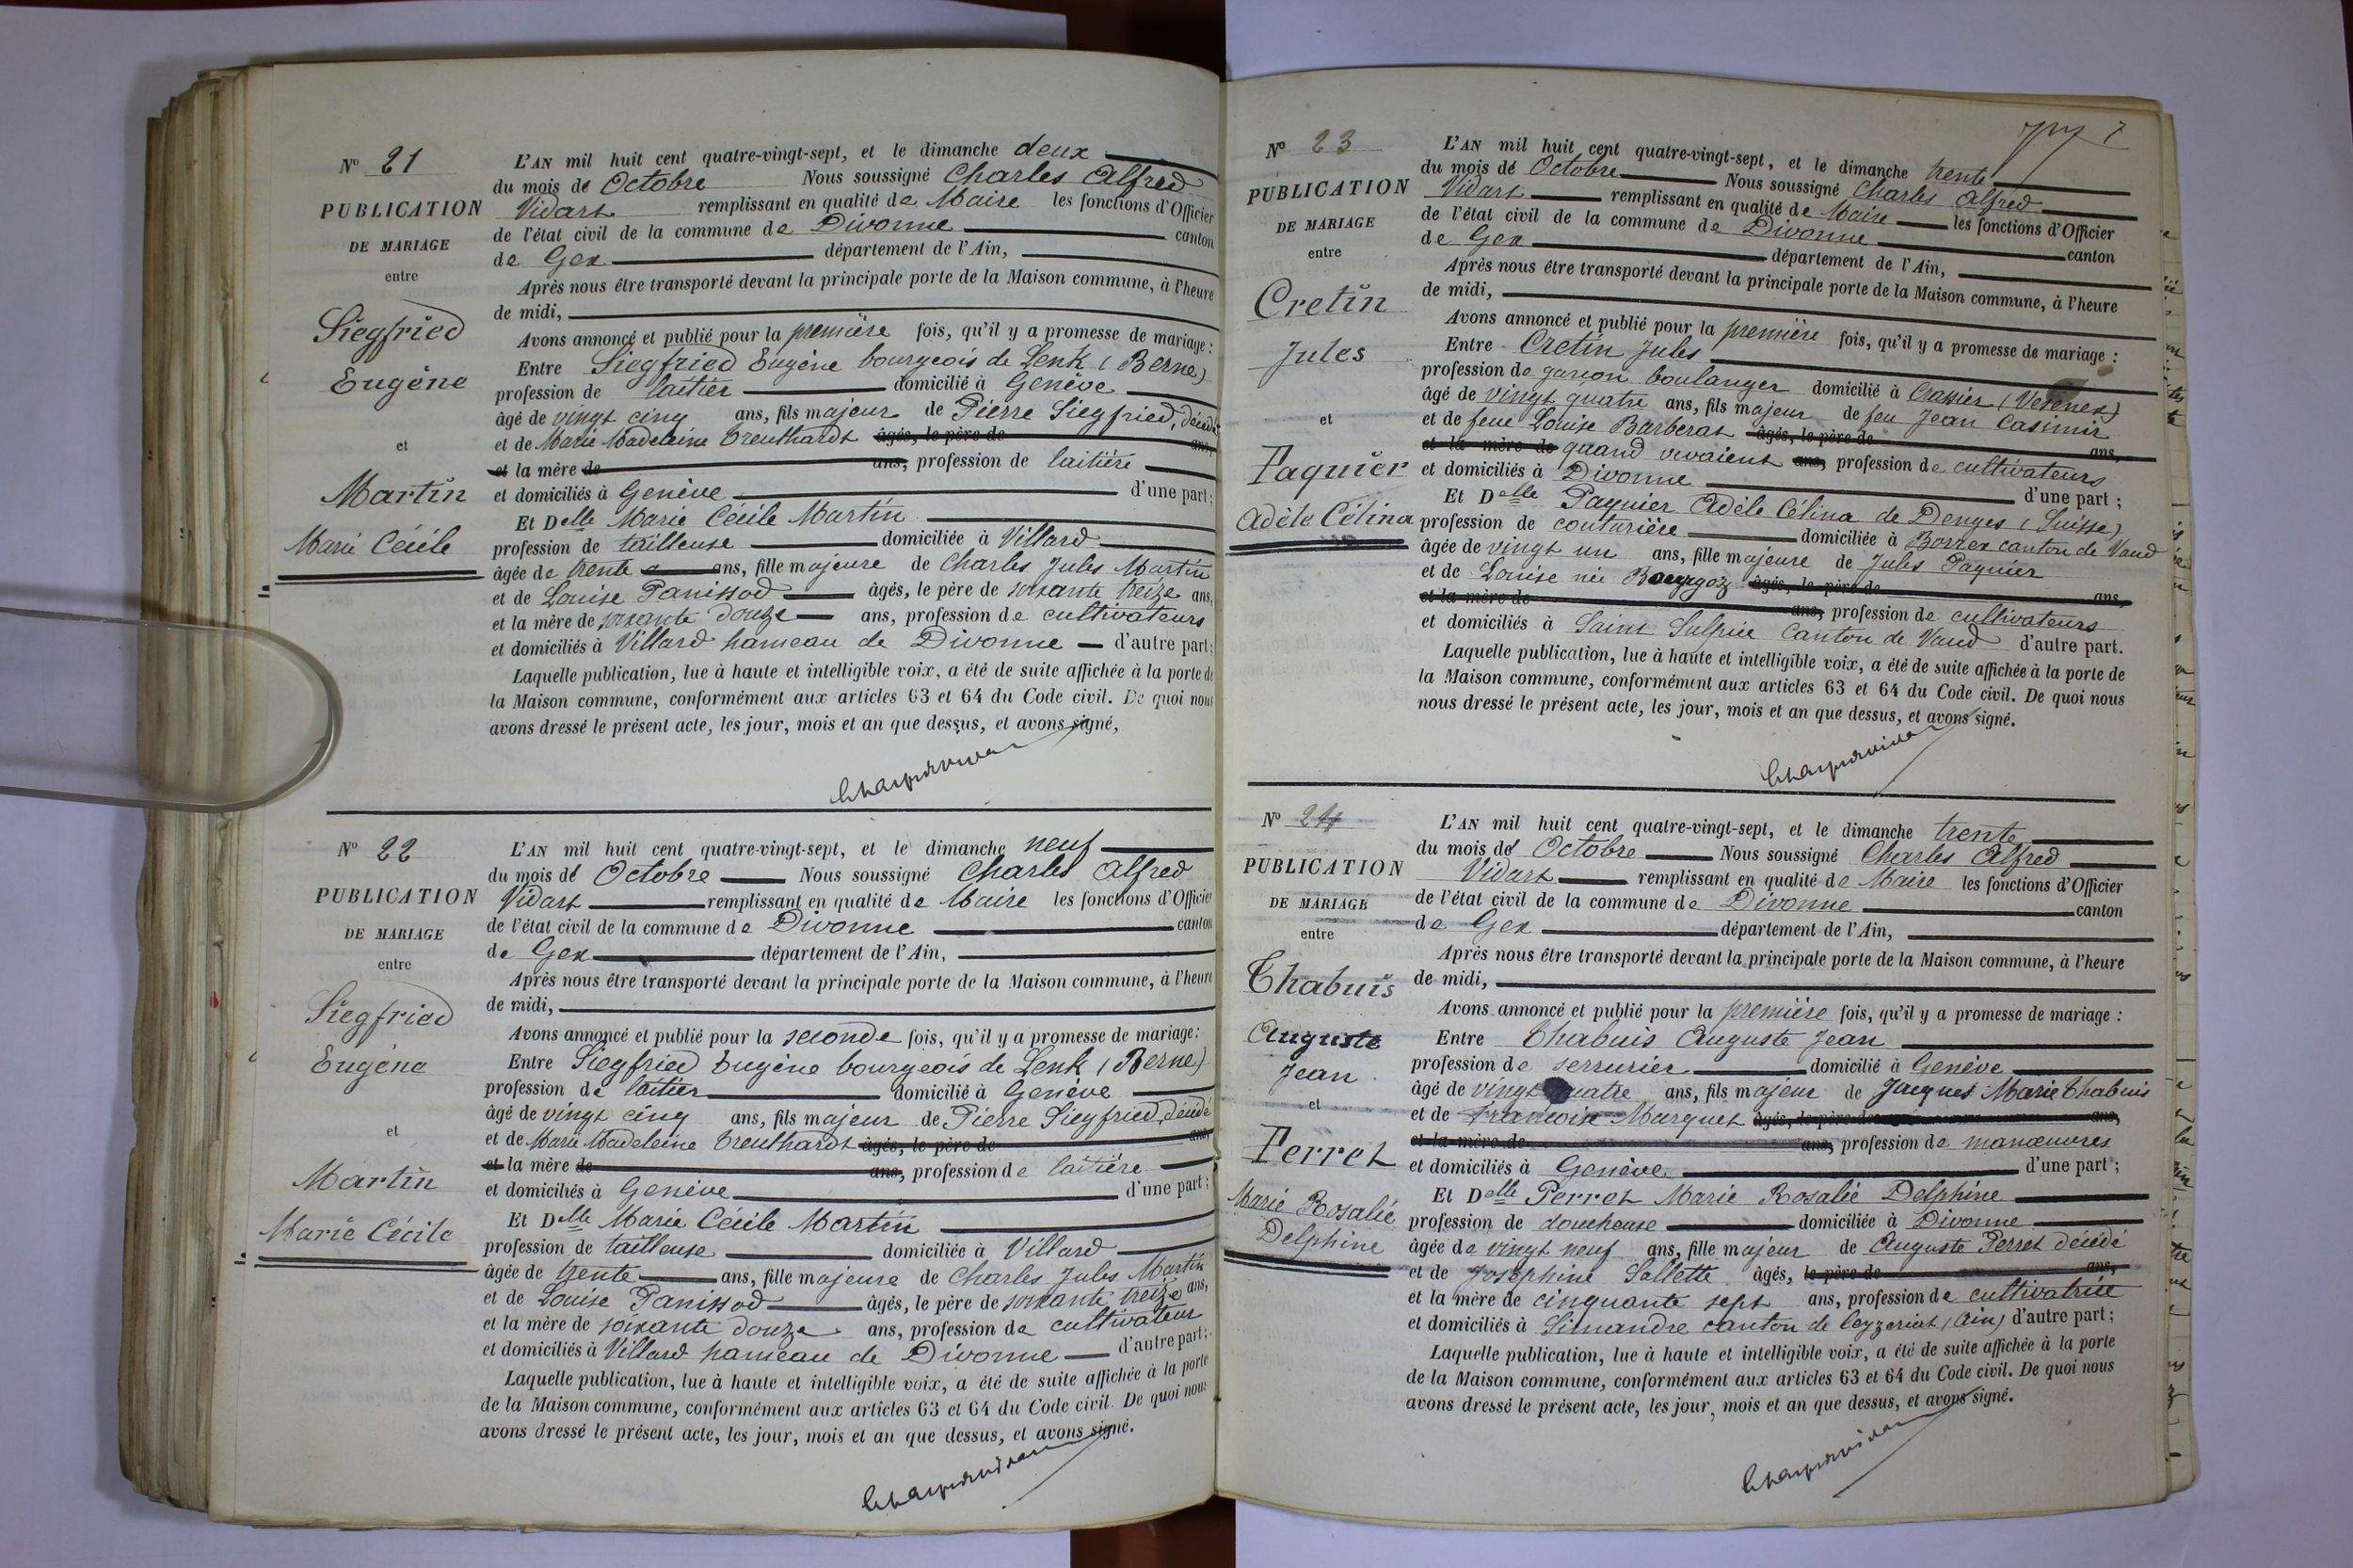 N° 21
PUBLICATION
DE MARIAGE
entre
Siegfried
Eugène
et
Martin
Marie Cécile
L'AN mil huit cent quatre-vingt-sept, et le dimanche deux
du mois de Octobre Nous soussigné Charles Alfred
Vidart remplissant en qualité de Maire les fonctions d'Officier
de l'état civil de la commune de Divonne canton
de Gex département de l'Ain,
Après nous être transporté devant la principale porte de la Maison commune, à l'heure
de midi,
Avons annoncé et publié pour la première fois, qu'il y a promesse de mariage :
Entre Siegfried Eugène bourgeois de Lenk (Berne)
profession de laitier domicilié à Genève
âgé de vingt cinq ans, fils majeur de Pierre Siegfried, décédé
et de Marie Madeleine Treuthardt âgés, le père de ans,
et la mère de ans, profession de laitière
et domiciliés à Genève d'une part ;
Et Delle Marie Cécile Martin
profession de tailleuse domiciliée à Villard
âgée de trente ans, fille majeure de Charles Jules Martin
et de Louise Panissod âgés, le père de soixante treize ans,
et la mère de soixante douze ans, profession de cultivateurs
et domiciliés à Villard hameau de Divonne d'autre part ;
Laquelle publication, lue à haute et intelligible voix, a été de suite affichée à la porte de
la Maison commune, conformément aux articles 63 et 64 du Code civil. De quoi nous
avons dressé le présent acte, les jour, mois et an que dessus, et avons signé,
N° 22
PUBLICATION
DE MARIAGE
entre
Siegfried
Eugène
et
Martin
Marie Cécile
L'AN mil huit cent quatre-vingt-sept, et le dimanche neuf
du mois de Octobre Nous soussigné Charles Alfred
Vidart remplissant en qualité de Maire les fonctions d'Officier
de l'état civil de la commune de Divonne canton
de Gex département de l'Ain,
Après nous être transporté devant la principale porte de la Maison commune, à l'heure
de midi,
Avons annoncé et publié pour la seconde fois, qu'il y a promesse de mariage :
Entre Siegfried Eugène bourgeois de Lenk (Berne)
profession de laitier domicilié à Genève
âgé de vingt cinq ans, fils majeur de Pierre Siegfried, décédé
et de Marie Madeleine Treuthardt âgés, le père de ans,
et la mère de ans, profession de laitière
et domiciliés à Genève d'une part ;
Et Delle Marie Cécile Martin
profession de tailleuse domiciliée à Villard
âgée de trente ans, fille majeure de Charles Jules Martin
et de Louise Panissod âgés, le père de soixante treize ans,
et la mère de soixante douze ans, profession de cultivateur
et domiciliés à Villard hameau de Divonne d'autre part ;
Laquelle publication, lue à haute et intelligible voix, a été de suite affichée à la porte
de la Maison commune, conformément aux articles 63 et 64 du Code civil. De quoi nous
avons dressé le présent acte, les jour, mois et an que dessus, et avons signé.
7
N° 23
PUBLICATION
DE MARIAGE
entre
Cretin
Jules
et
Paquier
Adèle Célina
L'AN mil huit cent quatre-vingt-sept, et le dimanche trente
du mois de Octobre Nous soussigné Charles Alfred
Vidart remplissant en qualité de Maire les fonctions d'Officier
de l'état civil de la commune de Divonne canton
de Gex département de l'Ain,
Après nous être transporté devant la principale porte de la Maison commune, à l'heure
de midi,
Avons annoncé et publié pour la première fois, qu'il y a promesse de mariage :
Entre Cretin Jules
profession de garçon boulanger domicilié à Crassier (Vesenex)
âgé de vingt quatre ans, fils majeur de feu Jean Casimir
et de feue Louise Barberat âgés, le père de ans,
et la mère de quand vivaient ans, profession de cultivateurs
et domiciliés à Divonne d'une part ;
Et Delle Paquier Adèle Célina de Denges (Suisse)
profession de couturière domiciliée à Borrex canton de Vaud
âgée de vingt un ans, fille majeure de Jules Paquier
et de Louise née Bourgoz âgés, le père de ans,
et la mère de ans, profession de cultivateurs
et domiciliés à Saint Sulpice Canton de Vaud d'autre part.
Laquelle publication, lue à haute et intelligible voix, a été de suite affichée à la porte de
la Maison commune, conformément aux articles 63 et 64 du Code civil. De quoi nous
nous dressé le présent acte, les jour, mois et an que dessus, et avons signé.
N° 24
PUBLICATION
DE MARIAGE
entre
Chabuis
Auguste
Jean
et
Perret
Marie Rosalie
Delphine
L'AN mil huit cent quatre-vingt-sept, et le dimanche trente
du mois de Octobre Nous soussigné Charles Alfred
Vidart remplissant en qualité de Maire les fonctions d'Officier
de l'état civil de la commune de Divonne canton
de Gex département de l'Ain,
Après nous être transporté devant la principale porte de la Maison commune, à l'heure
de midi,
Avons annoncé et publié pour la première fois, qu'il y a promesse de mariage :
Entre Chabuis Auguste Jean
profession de serrurier domicilié à Genève
âgé de vingt quatre ans, fils majeur de Jacques Marie Chabuis
et de Francoise Marquet âgés, le père de ans,
et la mère de ans, profession de manœuvres
et domiciliés à Genève d'une part ;
Et Delle Perret Marie Rosalie Delphine
profession de doucheuse domiciliée à Divonne
âgée de vingt neuf ans, fille majeur de Auguste Perret décédé
et de Joséphine Sallette âgés, le père de ans,
et la mère de cinquante sept ans, profession de cultivatrice
et domiciliés à Simandre canton de Ceyzeriat (Ain) d'autre part ;
Laquelle publication, lue à haute et intelligible voix, a été de suite affichée à la porte
de la Maison commune, conformément aux articles 63 et 64 du Code civil. De quoi nous
avons dressé le présent acte, les jour, mois et an que dessus, et avons signé.